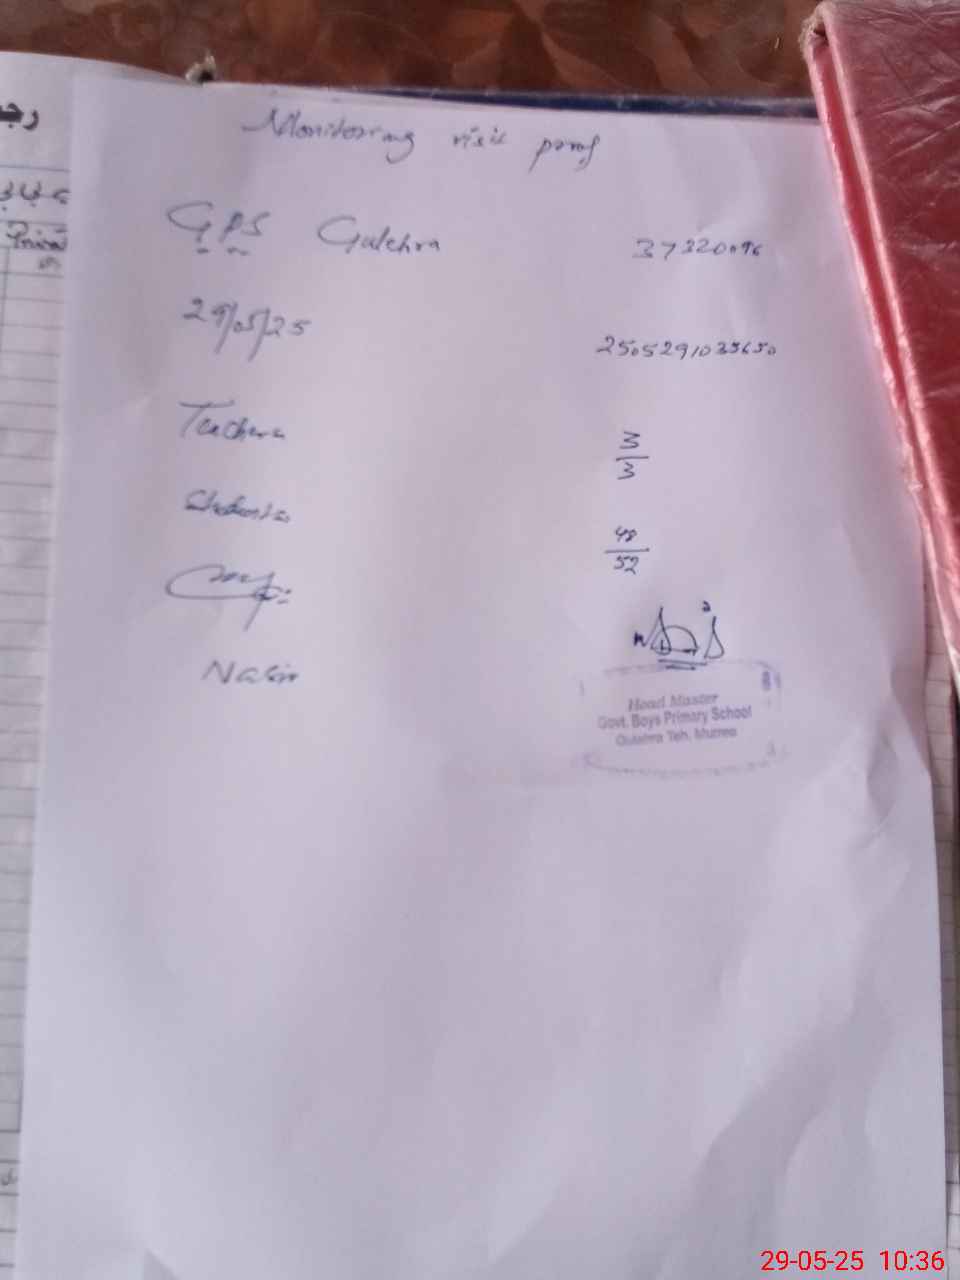 Monitoring visit proof
GPS Gulehra 37320096
29/05/25
2505291035650
Teachers 3/3
Students 48/52
Nasir
Head Master
Govt. Boys Primary School
Gulehra Teh. Murree
29-05-25 10:36